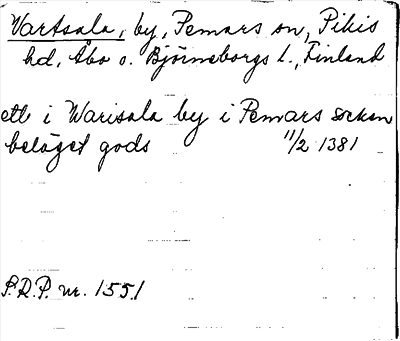 Vartsala, by, Pemars sn, Pikis
hd, Åbo o. Björneborgs l., Finland
ett i Warisala by i Pemars socken
beläget gods 11/2 1381
S.R.P. nr. 1551